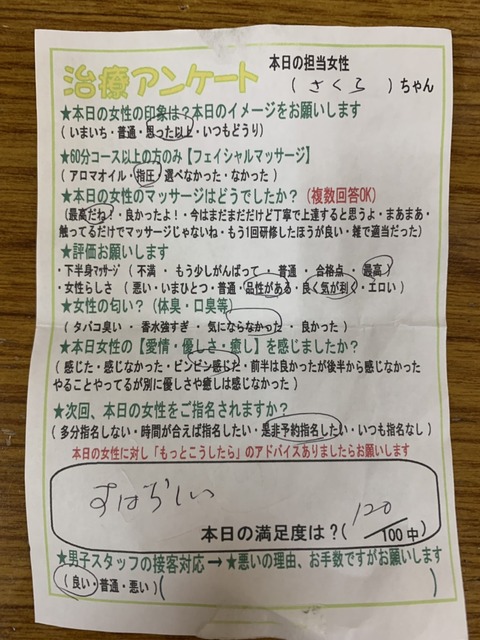 治療アンケート
本日の担当女性
(さくら)ちゃん
★本日の女性の印象は？本日のイメージをお願いします
(いまいち・普通・思った以上・いつもどうり)
★60分コース以上の方のみ【フェイシャルマッサージ】
(アロマオイル・指圧・選べなかった・なかった)
★本日の女性のマッサージはどうでしたか？(複数回答OK)
(最高だね！・良かったよ！・今はまだまだだけど丁寧で上達すると思うよ・まあまあ・
触ってるだけでマッサージじゃないね・もう1回研修したほうが良い・雑で適当だった)
★評価お願いします
・下半身マッサージ (不満・もう少しがんばって・普通・合格点・最高)
・女性らしさ (悪い・いまひとつ・普通・品性がある・良く気が利く・エロい)
★女性の匂い？(体臭・口臭等)
(タバコ臭い・香水強すぎ・気にならなかった・良かった)
★本日女性の【愛情・優しさ・癒し】を感じましたか？
(感じた・感じなかった・ビンビン感じた・前半は良かったが後半から感じなかった
やることやってるが別に優しさや癒しは感じなかった)
★次回、本日の女性をご指名されますか？
(多分指名しない・時間が合えば指名したい・是非予約指名したい・いつも指名なし)
本日の女性に対し「もっとこうしたら」のアドバイスありましたらお願いします
すばらしい
本日の満足度は？(120/100中)
★男子スタッフの接客対応→★悪いの理由、お手数ですがお願いします
(良い・普通・悪い)( )